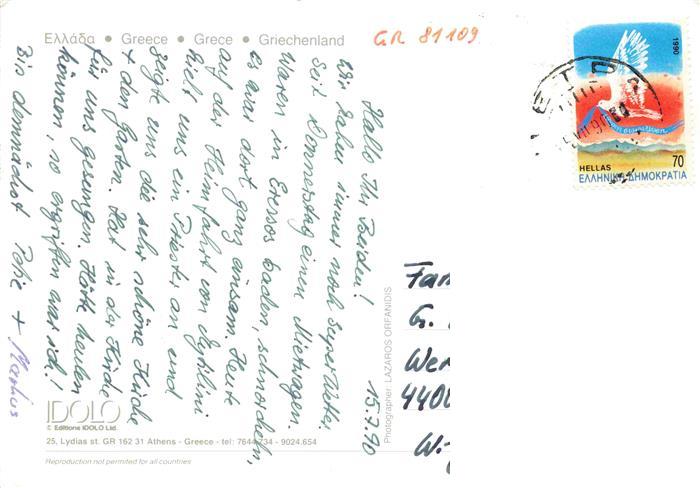 Ελλάδα • Greece • Grece • Griechenland
GR 81109
1990
70
HELLAS
ΕΛΛΗΝΙΚΗ ΔΗΜΟΚΡΑΤΙΑ
15.7.90
Hallo Ihr Beiden!
Wir haben immer noch Super Wetter.
Seit Donnerstag einen Mietwagen.
Waren in Eressos baden, schnorcheln,
es war dort ganz einsam. Heute
auf der Heimfahrt von Mytilini
hielt uns ein Priester an und
zeigte uns die sehr schöne Kirche
+ den Garten. Hat in der Kirche
für uns gesungen. Hätte heulen
können, so ergriffen war ich!
Bis demnächst + Markus
Fam
G.
Wer
4400
W.-
Photographer: LAZAROS ORFANIDIS
IDOLO
© Editions IDOLO Ltd.
25, Lydias st. GR 162 31 Athens - Greece - tel: 7644 734 - 9024.654
Reproduction not permited for all countries